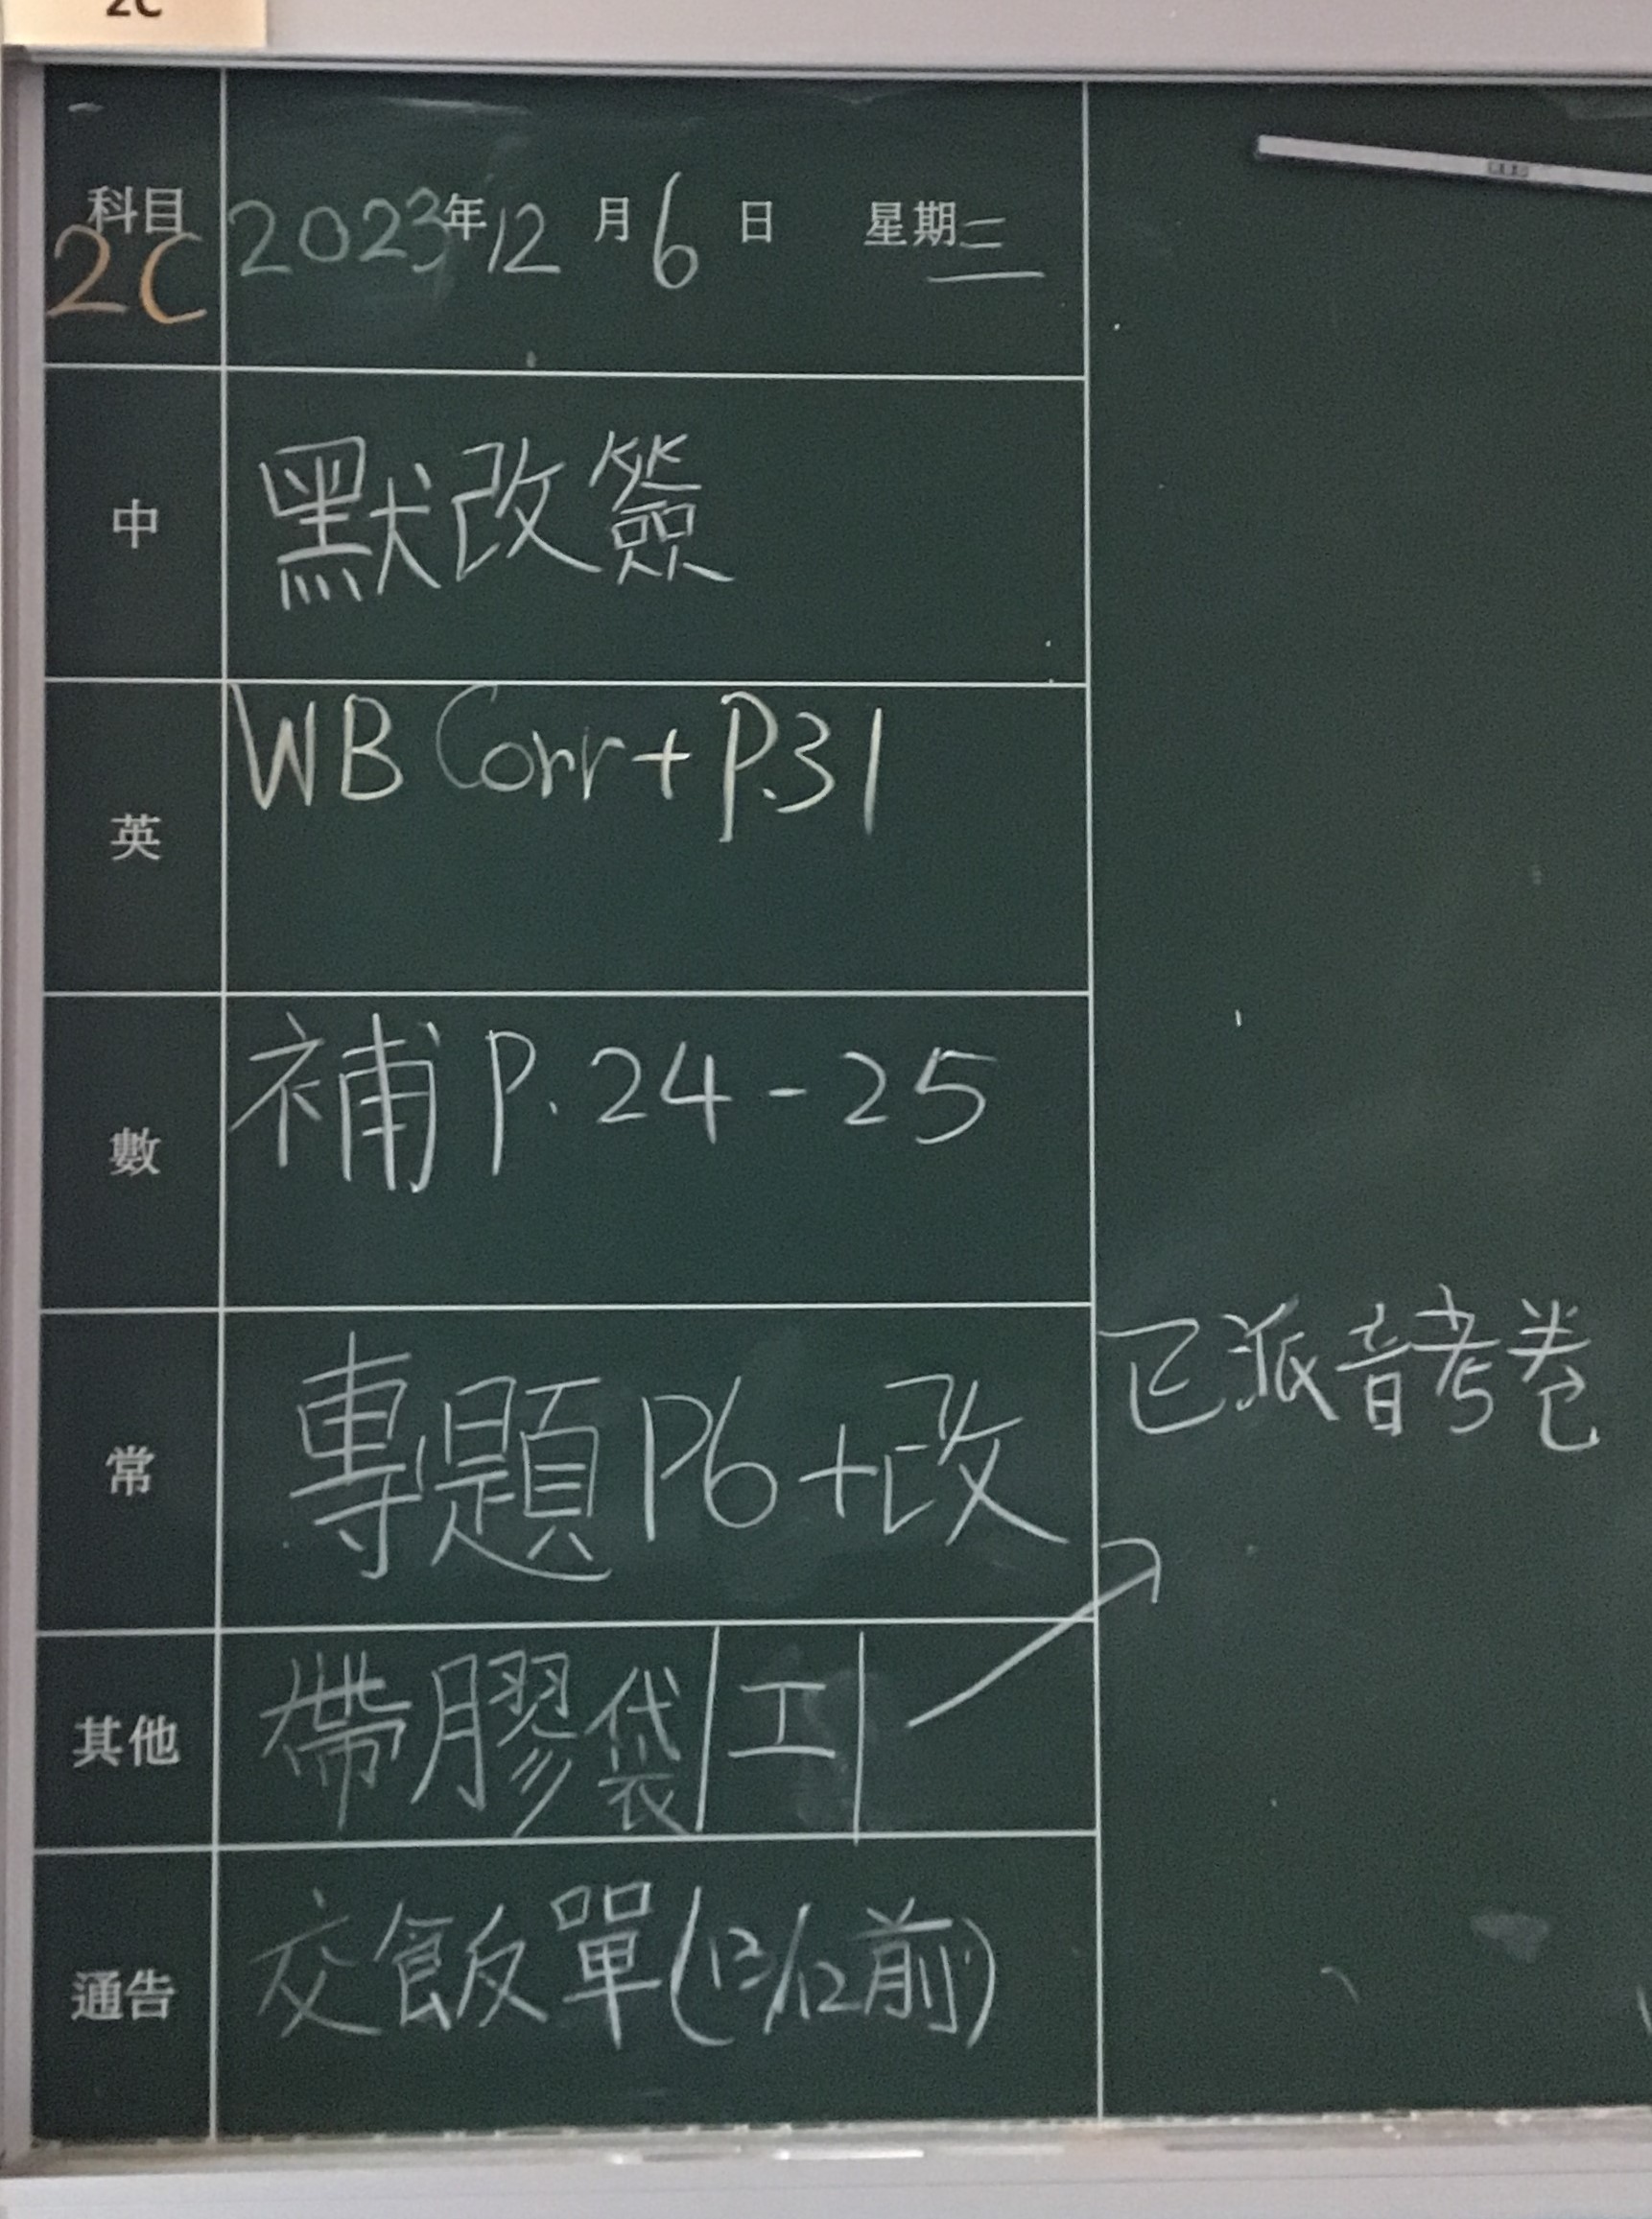 2C
科目 2023年12月6日 星期三
2C
中 默改簽
英 WB Corr + P.31
數 補 P.24-25
常 專題P6+改
已派音考卷
其他 帶膠袋|工|
通告 交飯單(13/12前)